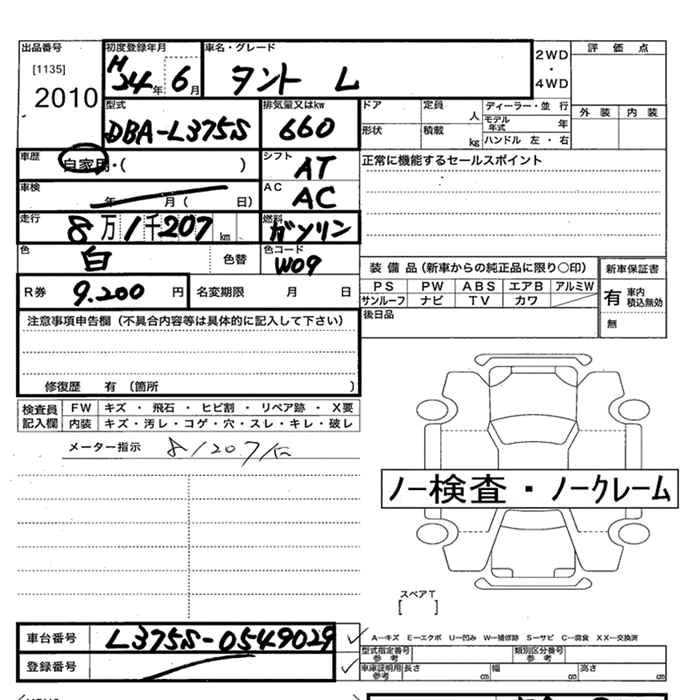 出品番号 初度登録年月 車名・グレード 2WD・4WD 評価点
[1135] 2010 H24年 6月 タント L 外装 内装
型式 排気量又はkw ドア 定員 人 ディーラー・並 行
DBA-L375S 660 形状 積載 kg モデル年式 年
ハンドル 左・右
車歴 自家用・( ) シフト AT 正常に機能するセールスポイント
車検 年 月( 日) AC AC
走行 8万1千207km 燃料 ガソリン
色 白 色替 色コード W09
装備品(新車からの純正品に限り○印) 新車保証書
R券 9.200円 名変期限 月 日 PS PW ABS エアB アルミW 有 車内積込無効
サンルーフ ナビ TV カワ
注意事項申告欄(不具合内容等は具体的に記入して下さい) 後日品 無
修復歴 有(箇所 )
検査員記入欄 FW キズ・飛石・ヒビ割・リペア跡・X要
内装 キズ・汚レ・コゲ・穴・スレ・キレ・破レ
メーター指示 81207㎞
ノー検査・ノークレーム
スペアT
[ ]
車台番号 L375S-0549029 A―キズ E―エクボ U―凹み W―補修跡 S―サビ C―腐食 XX―交換済
型式指定番号 参考 類別区分番号 参考
登録番号 車庫証明用 参考 長さ ㎝ 幅 ㎝ 高さ ㎝